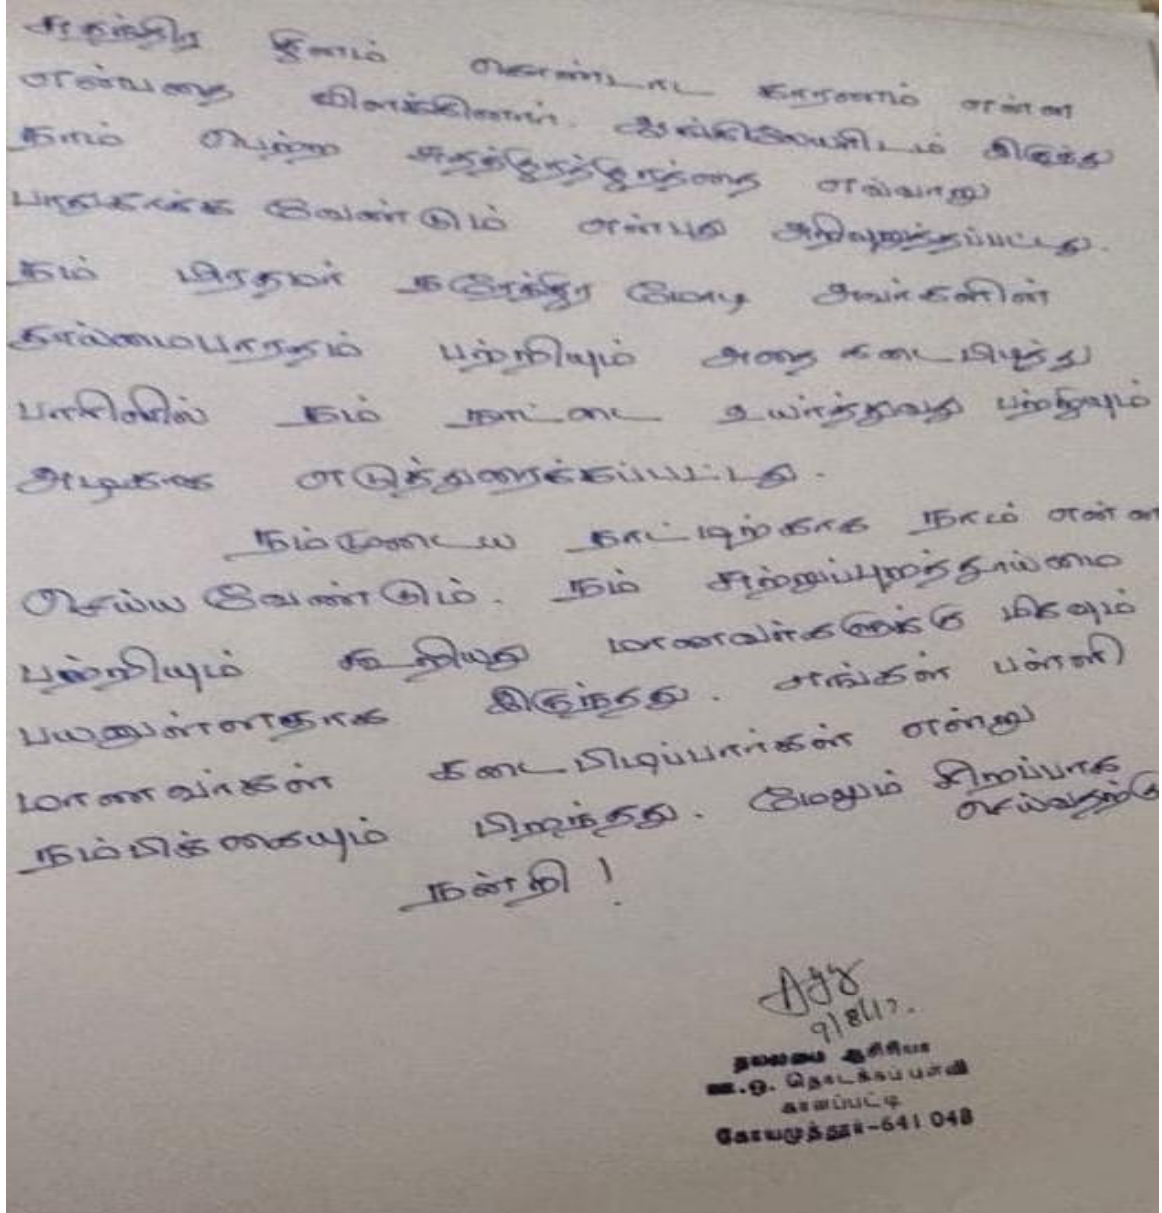 சுதந்திர தினம் கொண்டாட காரணம் என்ன
என்பதை விளக்கினார். ஆங்கிலேயரிடம் இருந்து
நாம் பெற்ற சுதந்திரத்தை எவ்வாறு
பாதுகாக்க வேண்டும் என்பது அறிவுறுத்தப்பட்டது.
நம் பிரதமர் நரேந்திர மோடி அவர்களின்
தூய்மைபாரதம் பற்றியும் அதை கடைபிடித்து
பாரினில் நம் நாட்டை உயர்த்துவது பற்றியும்
அழகாக எடுத்துரைக்கப்பட்டது.
நம்முடைய நாட்டிற்காக நாம் என்ன
செய்ய வேண்டும். நம் சுற்றுப்புறத்தூய்மை
பற்றியும் கூறியது மாணவர்களுக்கு மிகவும்
பயனுள்ளதாக இருந்தது. எங்கள் பள்ளி
மாணவர்கள் கடைபிடிப்பார்கள் என்று
நம்பிக்கையும் பிறந்தது. மேலும் சிறப்பாக
செய்வதற்கு
நன்றி!
9/8/17.
தலைமை ஆசிரியர்
ஊ.ஒ. தொடக்கப் பள்ளி
காளப்பட்டி
கோயமுத்தூர்-641 048